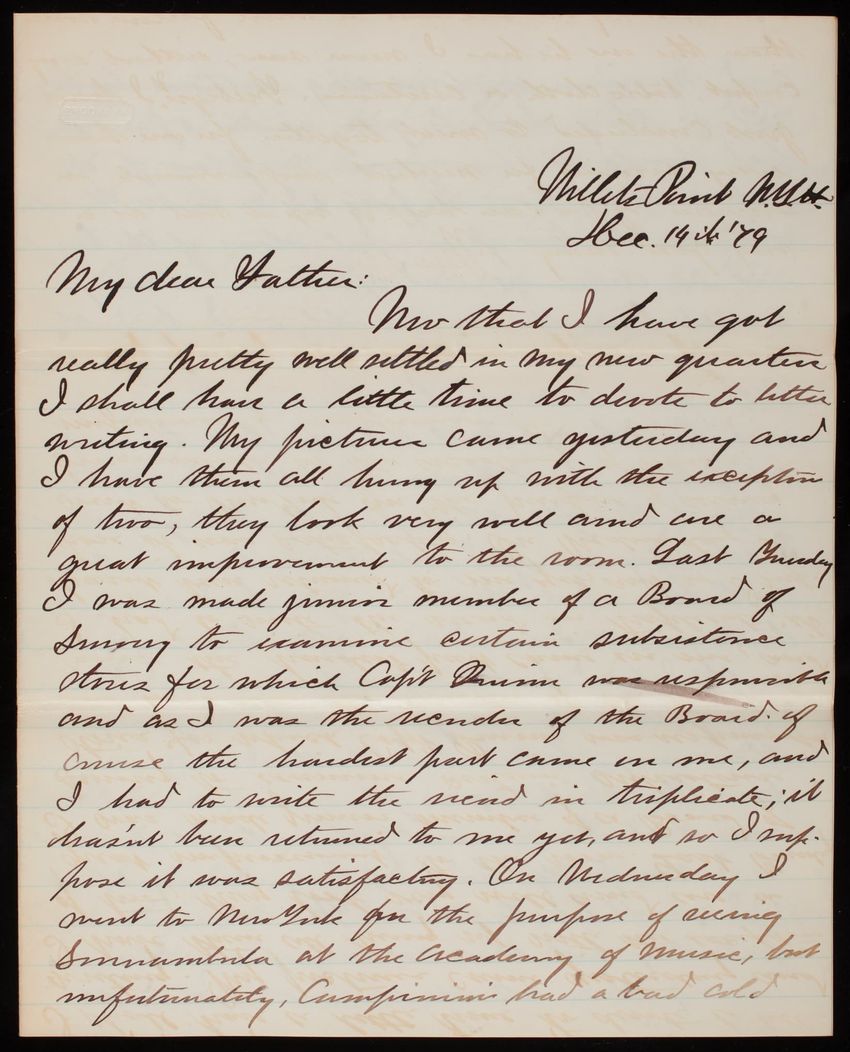 Willets Point N.Y.H.
Dec. 14th '79
My dear Father:
Now that I have got
really pretty well settled in my new quarters
I shall have a little time to devote to letter
writing. My pictures came yesterday and
I have them all hung up with the exception
of two, they look very well and are a
great improvement to the room. Last Tuesday
I was made junior member of a Board of
Survey to examine certain subsistence
stores for which Cap't Quinn was responsible
and as I was the recorder of the Board of
course the hardest part came on me, and
I had to write the record in triplicate; it
has'nt been returned to me yet, and so I sup-
pose it was satisfactory. On Wednesday I
went to New York for the purpose of seeing
Sonnambula at the Academy of Music, but
unfortunately, Campinini had a bad cold